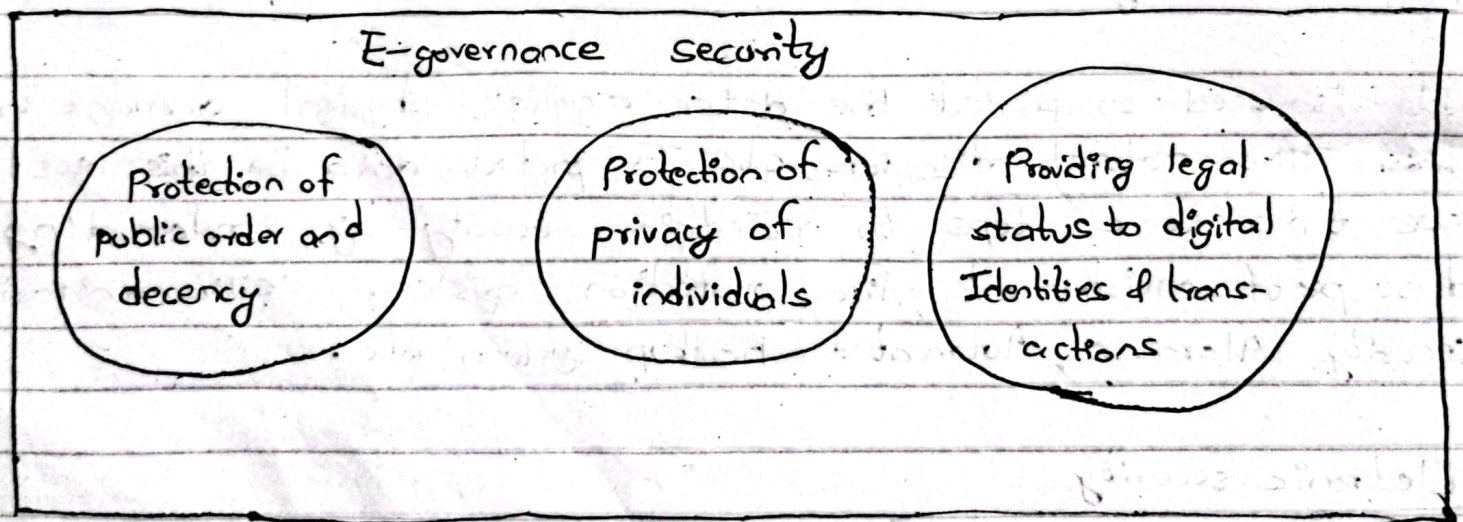 E-governance security
Protection of
public order and
decency.
Protection of
privacy of
individuals
Providing legal
status to digital
Identities & trans-
actions